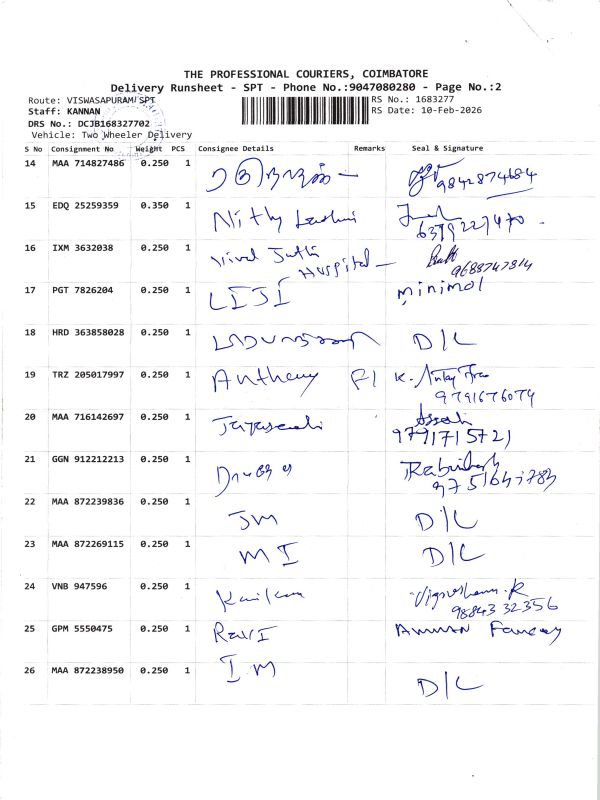 THE PROFESSIONAL COURIERS, COIMBATORE
Delivery Runsheet - SPT - Phone No.:9047080280 - Page No.:2
Route: VISWASAPURAM/SPT RS No.: 1683277
Staff: KANNAN RS Date: 10-Feb-2026
DRS No.: DCJB168327702
Vehicle: Two Wheeler Delivery
S No Consignment No Weight PCS Consignee Details Remarks Seal & Signature
14 MAA 714827486 0.250 1 9842874684
15 EDQ 25259359 0.350 1 Nithy Lashmi 6379227470
16 IXM 3632038 0.250 1 Hospital 9688747814
17 PGT 7826204 0.250 1 LIJI minimol
18 HRD 363858028 0.250 1 D/L
19 TRZ 205017997 0.250 1 Anthony K. 9791676079
20 MAA 716142697 0.250 1 9791715721
21 GGN 912212213 0.250 1
22 MAA 872239836 0.250 1 JM D/L
23 MAA 872269115 0.250 1 M I D/L
24 VNB 947596 0.250 1 9884332356
25 GPM 5550475 0.250 1 Ravi Amman Fancy
26 MAA 872238950 0.250 1 I M D/L